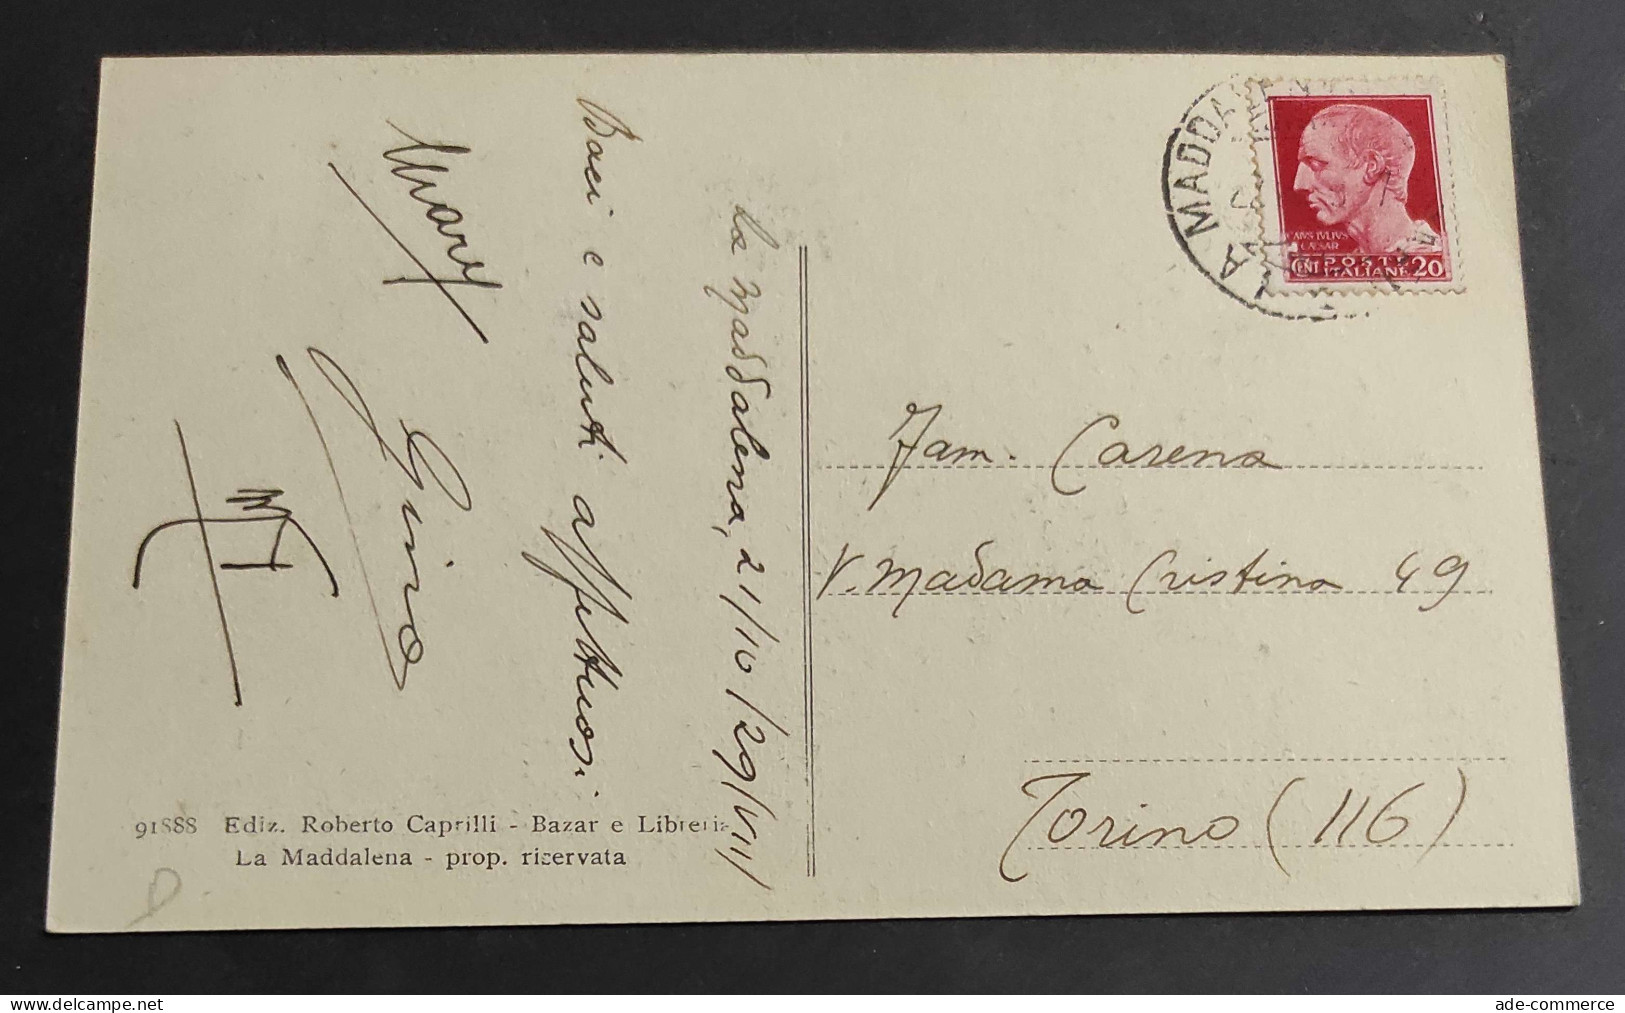 La Maddalena, 21/10/29/VIII
Baci e saluti affettuosi
Mary
Gino
91888 Ediz. Roberto Caprilli - Bazar e Libreria
La Maddalena - prop. riservata
LA MADDALENA
CAIVS IVLIVS
CAESAR
CENT POSTE ITALIANE 20
Fam. Carena
V. Madama Cristina 49
Torino (116)
D
ade-commerce